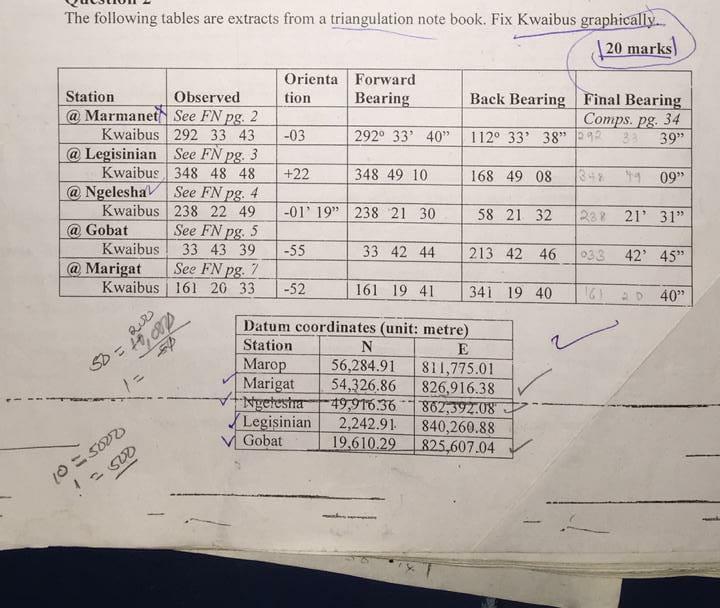 Question 2
The following tables are extracts from a triangulation note book. Fix Kwaibus graphically.
20 marks
Station Observed Orienta tion Forward Bearing Back Bearing Final Bearing
@ Marmanet See FN pg. 2 Comps. pg. 34
Kwaibus 292 33 43 -03 292° 33' 40" 112° 33' 38" 292 33 39"
@ Legisinian See FN pg. 3
Kwaibus 348 48 48 +22 348 49 10 168 49 08 348 49 09"
@ Ngelesha See FN pg. 4
Kwaibus 238 22 49 -01' 19" 238 21 30 58 21 32 238 21' 31"
@ Gobat See FN pg. 5
Kwaibus 33 43 39 -55 33 42 44 213 42 46 033 42' 45"
@ Marigat See FN pg. 7
Kwaibus 161 20 33 -52 161 19 41 341 19 40 161 20 40"
Datum coordinates (unit: metre)
Station N E
Marop 56,284.91 811,775.01
Marigat 54,326.86 826,916.38
Ngelesha 49,916.36 862,392.08
Legisinian 2,242.91 840,260.88
Gobat 19,610.29 825,607.04
50 =
50
1 =
10 = 5000
1 = 500